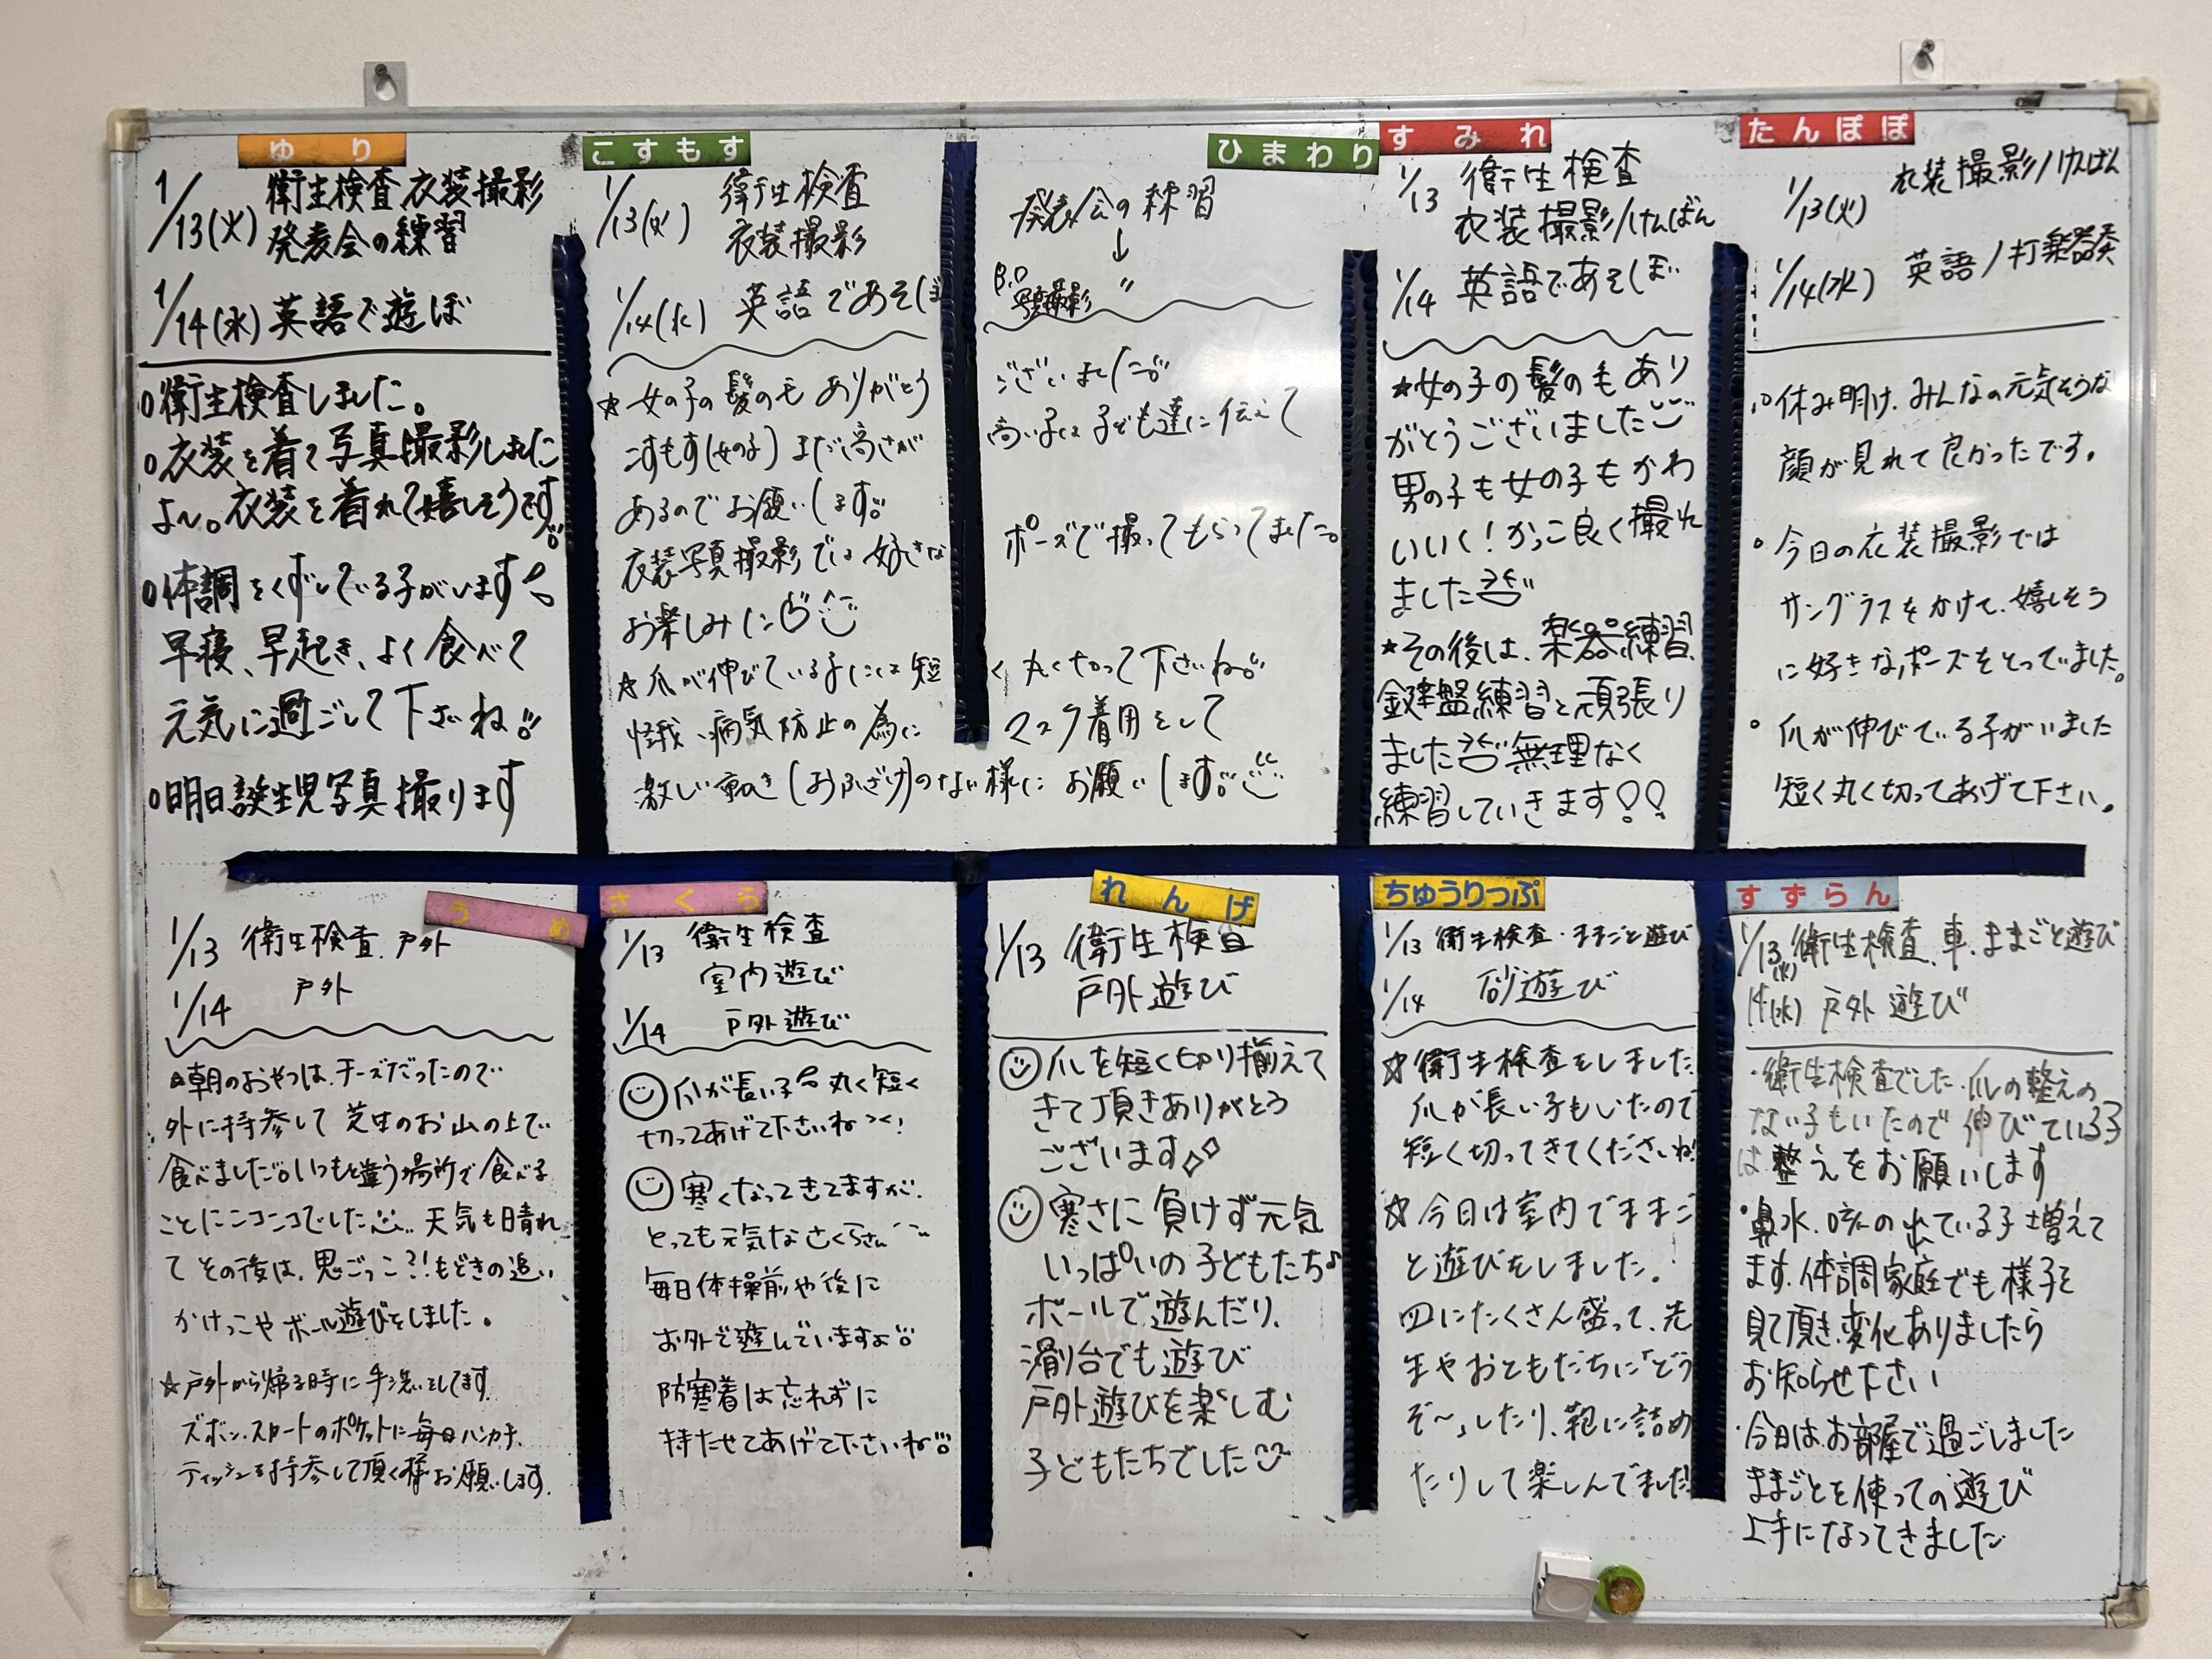 ゆり
1/13(火) 衛生検査 衣装撮影
発表会の練習
1/14(水) 英語で遊ぼ
○衛生検査しました。
○衣装を着て写真撮影しました
よ〜。衣装を着れて嬉しそうです
○体調をくずしている子がいます
早寝、早起き、よく食べて
元気に過ごして下さいね
○明日誕生児写真撮ります
こすもす
ひまわり
1/13(火) 衛生検査 発表会の練習
衣装撮影 ↓
1/14(水) 英語であそぼ B.D写真撮影 〃
☆女の子の髪の毛 ありがとうございました
こすもす(女の子) まだ高さが高い子は子ども達に伝えて
あるのでお願いします
衣装写真撮影では好きなポーズで撮ってもらってました。
お楽しみに
☆爪が伸びている子には短く丸く切って下さいね
怪我、病気防止の為にマスク着用をして
激しい動き(おふざけ)のない様にお願いします
すみれ
1/13 衛生検査
衣装撮影/けんばん
1/14 英語であそぼ
★女の子の髪の毛あり
がとうございました
男の子も女の子もかわ
いいく!かっこ良く撮れ
ました
★その後は、楽器練習、
鍵盤練習と頑張り
ました 無理なく
練習していきます!!
たんぽぽ
1/13(火) 衣装撮影/けんばん
1/14(水) 英語/打楽器奏
○休み明け、みんなの元気そうな
顔が見れて良かったです。
○今日の衣装撮影では
サングラスをかけて、嬉しそう
に好きなポーズをとっていました。
○爪が伸びている子がいました
短く丸く切ってあげて下さい。
うめ
1/13 衛生検査、戸外
1/14 戸外
☆朝のおやつは、チーズだったので
外に持参して 芝生のお山の上で
食べました。いつもと違う場所で食べる
ことにニコニコでした 天気も晴れ
て その後は、鬼ごっこ?!もどきの追い
かけっこやボール遊びをしました。
☆戸外から帰る時に手洗いをしてます。
ズボン、スカートのポケットに毎日ハンカチ、
ティッシュを持参して頂く様お願いします。
さくら
1/13 衛生検査
室内遊び
1/14 戸外遊び
爪が長い子 丸く短く
切ってあげて下さいね
寒くなってきてますが、
とっても元気なさくらさん
毎日体操前や後に
お外で遊んでいますよ
防寒着は忘れずに
持たせてあげて下さいね
れんげ
1/13 衛生検査
戸外遊び
爪を短く切り揃えて
きて頂きありがとう
ございます
寒さに負けず元気
いっぱいの子どもたち♪
ボールで遊んだり、
滑り台でも遊び
戸外遊びを楽しむ
子どもたちでした
ちゅうりっぷ
1/13 衛生検査・ままごと遊び
1/14 砂遊び
☆衛生検査をしました
爪が長い子もいたので
短く切ってきてくださいね
☆今日は室内でままご
と遊びをしました。
皿にたくさん盛って、先
生やおともだちに「どう
ぞ〜」したり、鞄に詰め
たりして楽しんでました
すずらん
1/13(火) 衛生検査、車、ままごと遊び
14(水) 戸外遊び
・衛生検査でした、爪の整えの
ない子もいたので伸びている子
は整えをお願いします
・鼻水、咳の出ている子増えて
ます。体調家庭でも様子を
見て頂き、変化ありましたら
お知らせ下さい
・今日はお部屋で過ごしました
ままごとを使っての遊び
上手になってきました